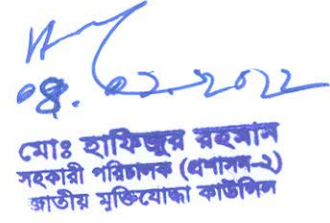 ০৪.০২.২০২২
মোঃ হাফিজুর রহমান
সহকারী পরিচালক (প্রশাসন-২)
জাতীয় মুক্তিযোদ্ধা কাউন্সিল